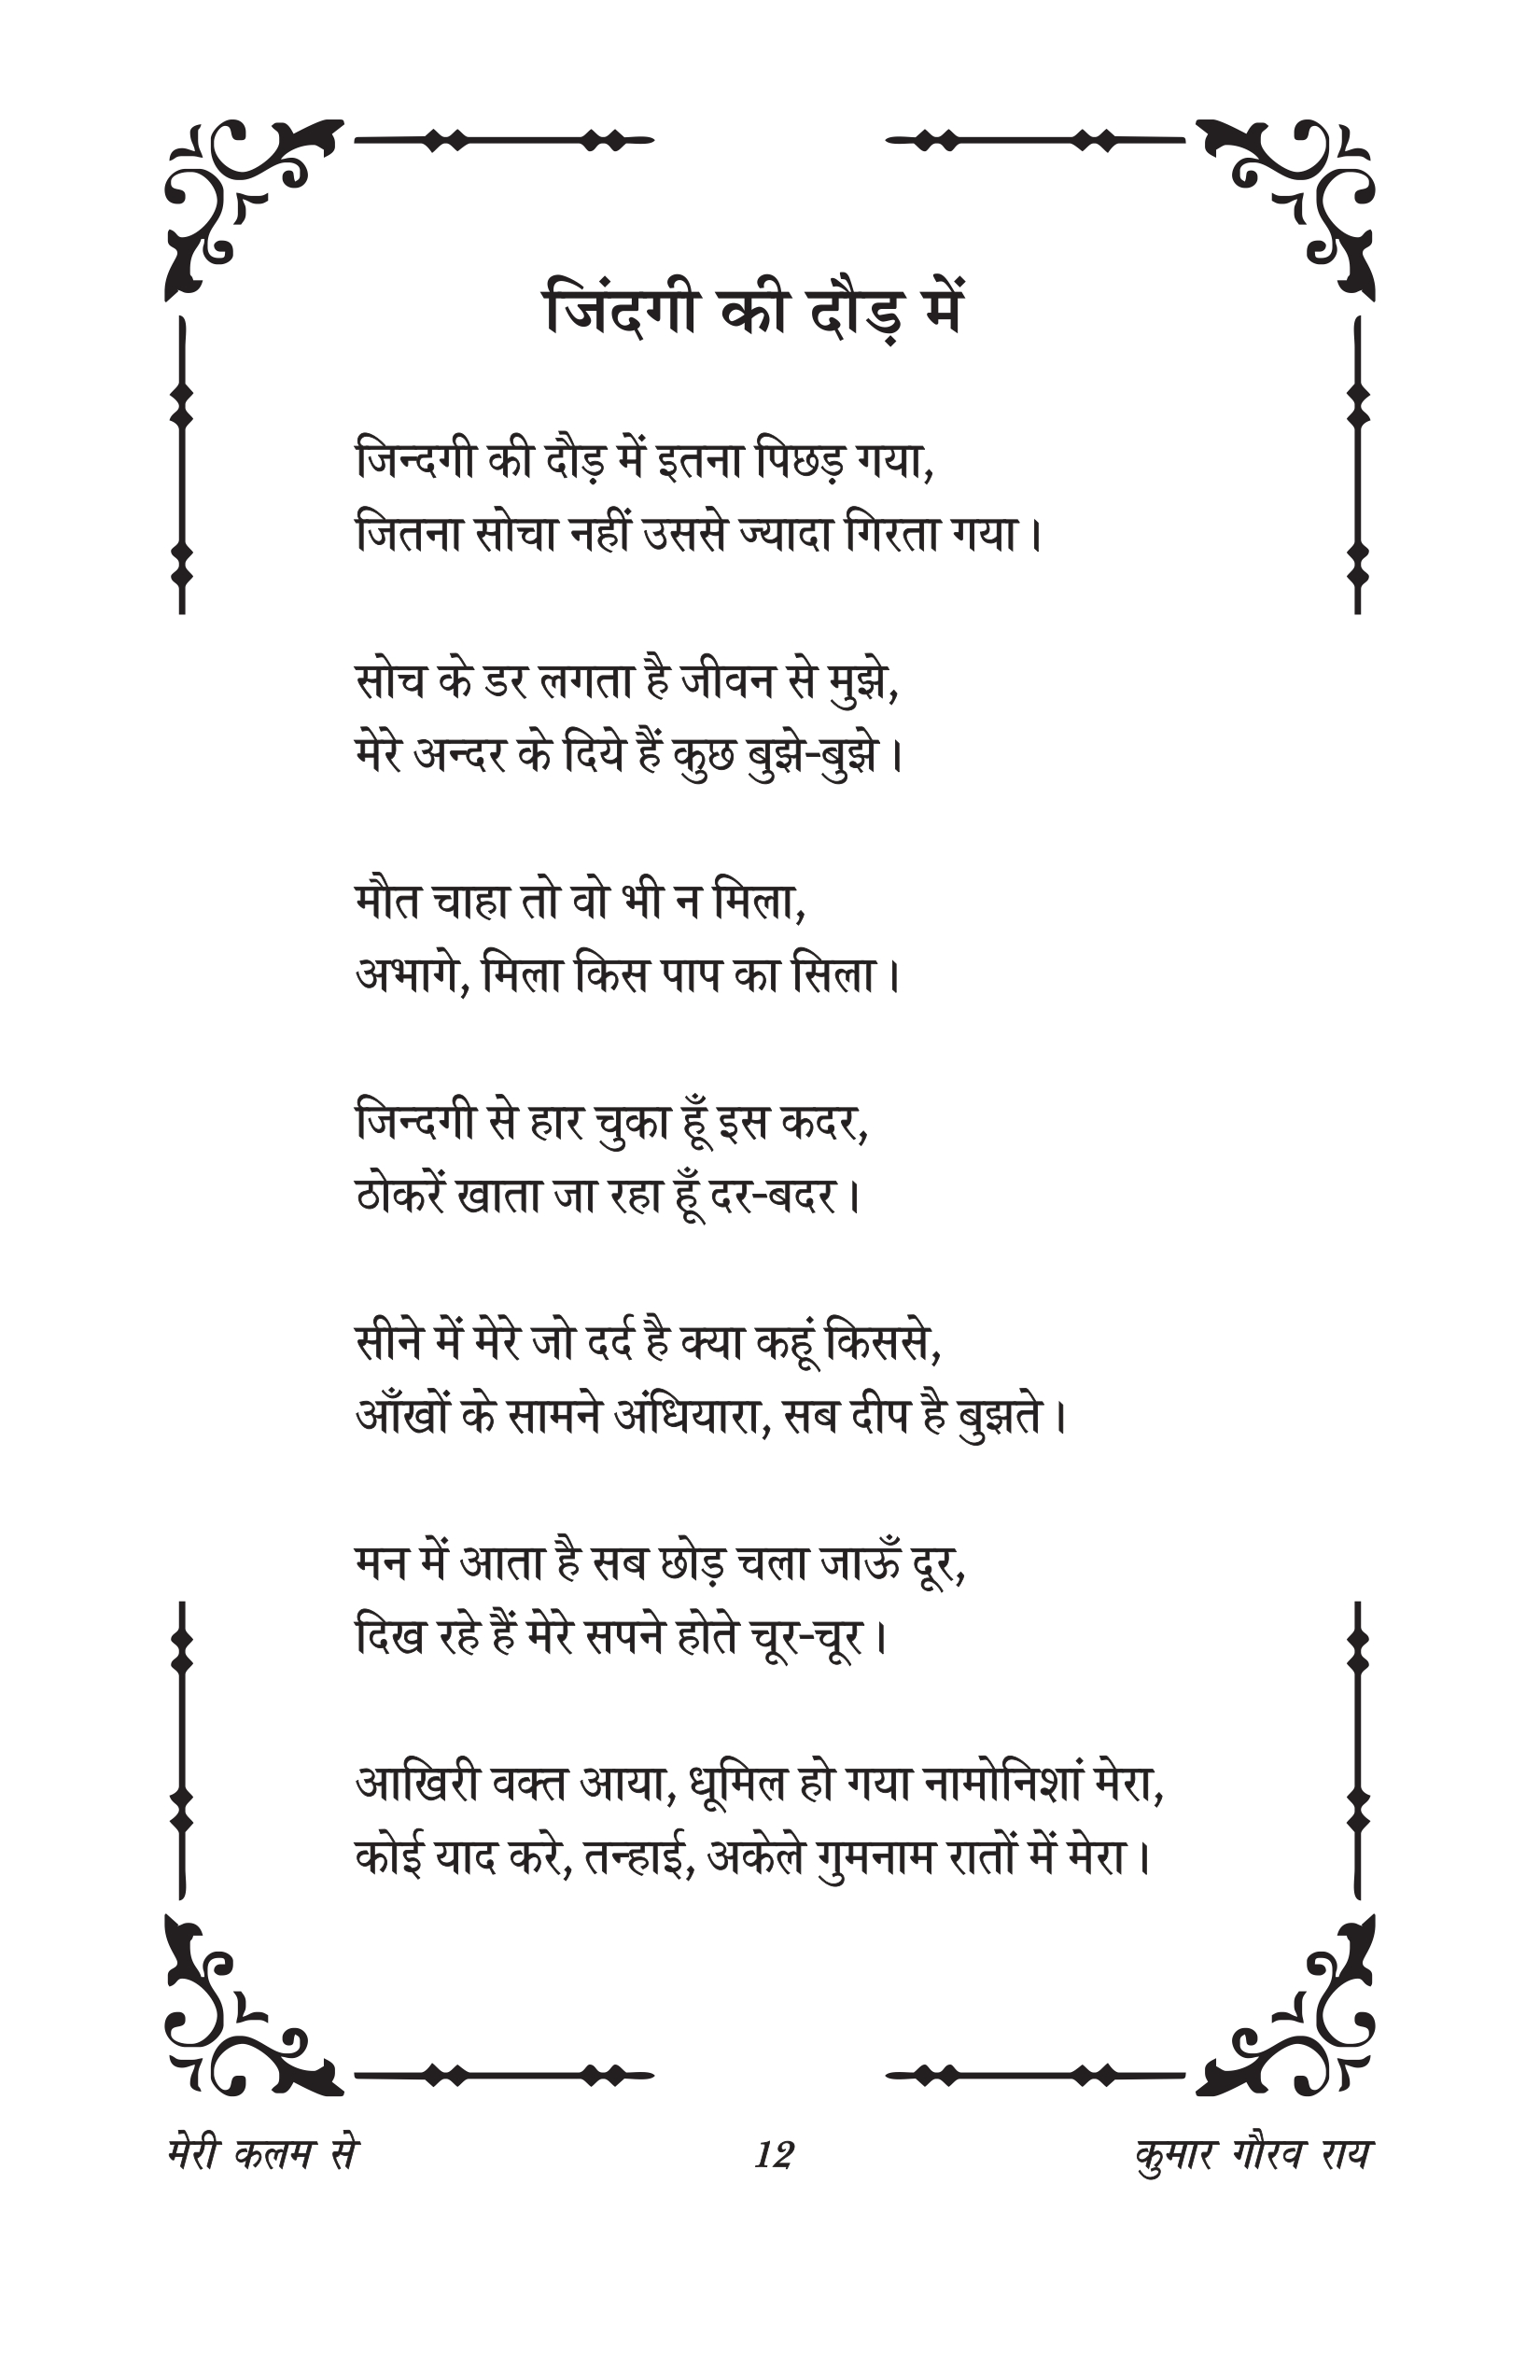 जिंदगी की दौड़ में
जिन्दगी की दौड़ में इतना पिछड़ गया,
जितना सोचा नहीं उससे ज्यादा गिरता गया।
सोच के डर लगता है जीवन से मुझे,
मेरे अन्दर के दिये हैं कुछ बुझे-बुझे।
मौत चाहा तो वो भी न मिला,
अभागे, मिला किस पाप का सिला।
जिन्दगी से हार चुका हूँ इस कदर,
ठोकरें खाता जा रहा हूँ दर-बदर।
सीने में मेरे जो दर्द है क्या कहूं किससे,
आँखों के सामने अंधियारा, सब दीप है बुझते।
मन में आता है सब छोड़ चला जाऊँ दूर,
दिख रहे हैं मेरे सपने होते चूर-चूर।
आखिरी वक्त आया, धूमिल हो गया नामोनिशां मेरा,
कोई याद करे, तन्हाई, अकेले गुमनाम रातों में मेरा।
मेरी कलम से 12 कुमार गौरव राय